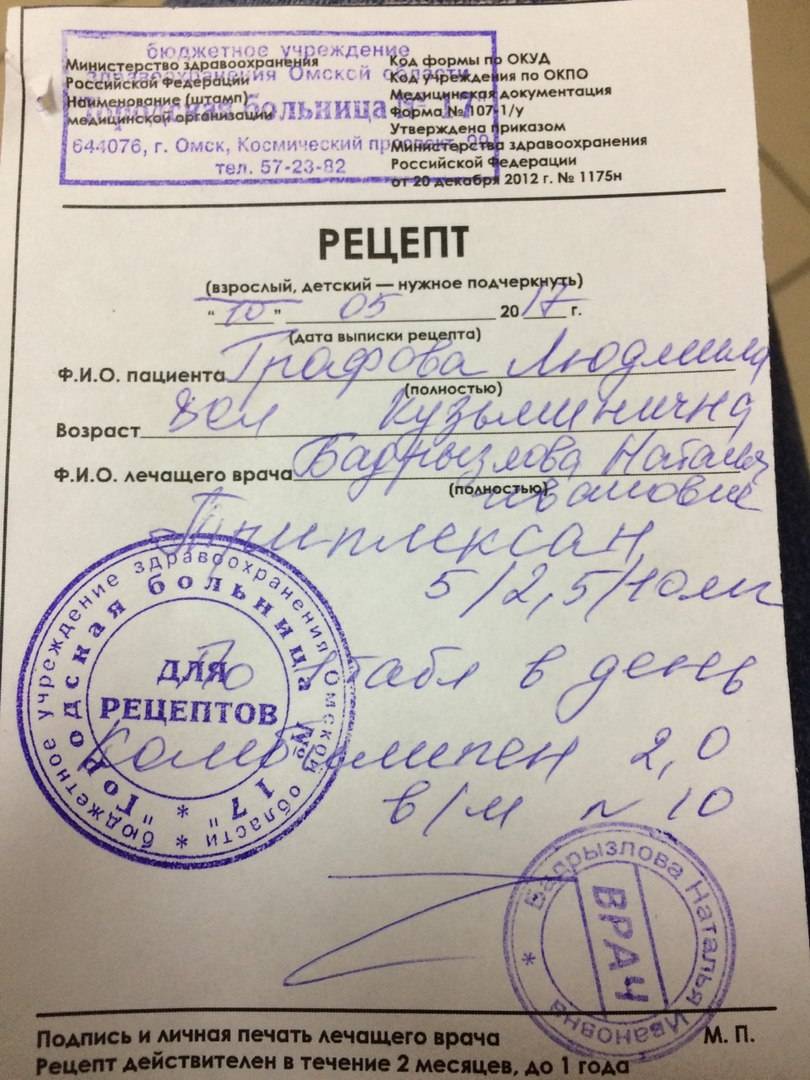 бюджетное учреждение
здравоохранения Омской области
Городская больница № 17"
644076, г. Омск, Космический проспект, 99
тел. 57-23-82
Министерство здравоохранения
Российской Федерации
Наименование (штамп)
медицинской организации
Код формы по ОКУД
Код учреждения по ОКПО
Медицинская документация
Форма № 107-1/у
Утверждена приказом
Министерства здравоохранения
Российской Федерации
от 20 декабря 2012 г. № 1175н
РЕЦЕПТ
(взрослый, детский — нужное подчеркнуть)
"10" 05 2017 г.
(дата выписки рецепта)
Ф.И.О. пациента Графова Людмила
(полностью)
Возраст Кузьминична
Ф.И.О. лечащего врача Бадрызлова Наталья
(полностью) Ивановна
Триплексан
5/2,5/10мг
По табл в день
Комбилипен 2,0
в/м N 10
бюджетное учреждение здравоохранения Омской области *
"Городская больница № 17" *
ДЛЯ
РЕЦЕПТОВ
Бадрызлова Наталья Ивановна *
ВРАЧ
Подпись и личная печать лечащего врача М. П.
Рецепт действителен в течение 2 месяцев, до 1 года